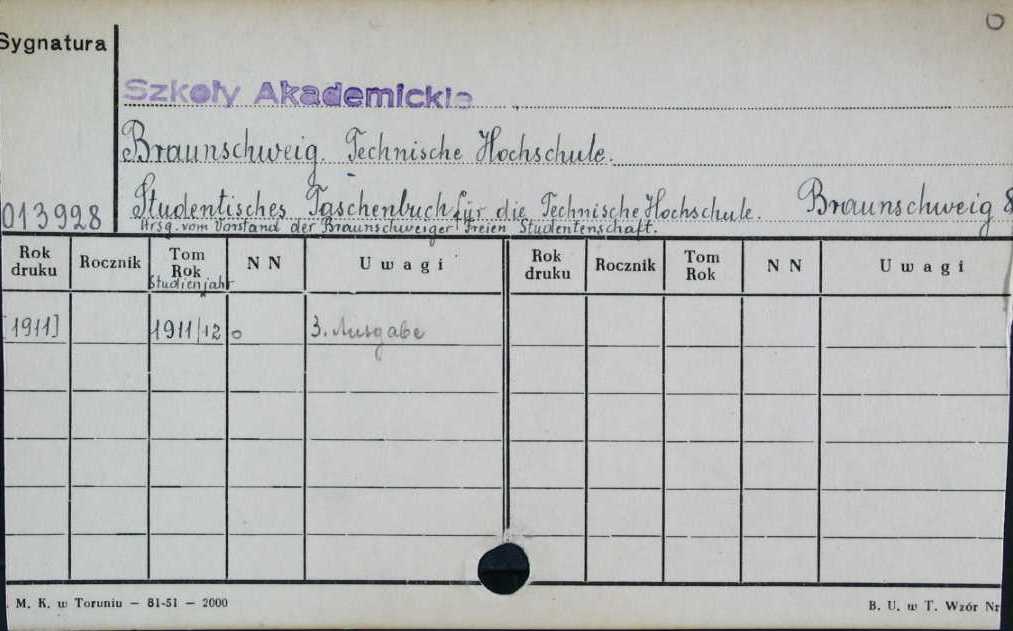 Sygnatura
Szkoły Akademickie
Braunschweig. Technische Hochschule.
013928 Studentisches Taschenbuch für die Technische Hochschule. Braunschweig 8
Hrsg. vom Vorstand der Braunschweiger Freien Studentenschaft.
Rok druku Rocznik Tom Rok N N Uwagi Rok druku Rocznik Tom Rok N N Uwagi
Studienjahr
[1911] 1911/12 o 3. Ausgabe
. M. K. w Toruniu — 81-51 — 2000 B. U. w T. Wzór Nr